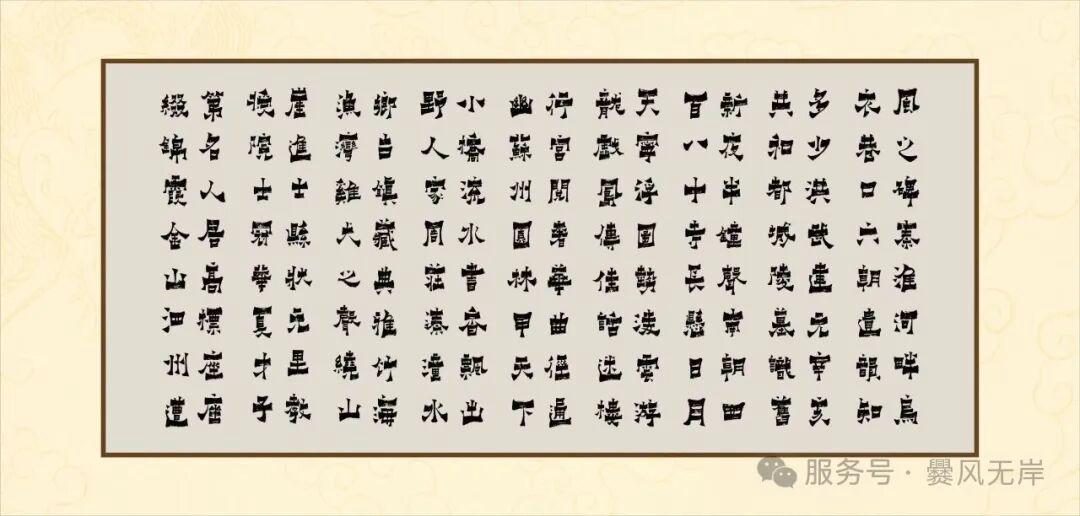 風之碑秦淮河畔烏
衣巷口六朝遺韻知
多少洪武建元宰亥
共和都城陵墓識舊
新夜半鐘聲南朝四
百八十寺長懸日月
天寧浮圖勢淩雲游
龍戲鳳傳佳話迷樓
行宮閱奢華曲徑通
幽蘇州園林甲天下
小橋流水書香飄出
野人家周莊溱潼水
鄉古鎮藏典雅竹海
漁灣雞犬之聲繞山
崖進士縣狀元里教
授院士冠華夏才子
第名人居高標座座
綴錦霞金山泗州遭
服务号·爨风无岸